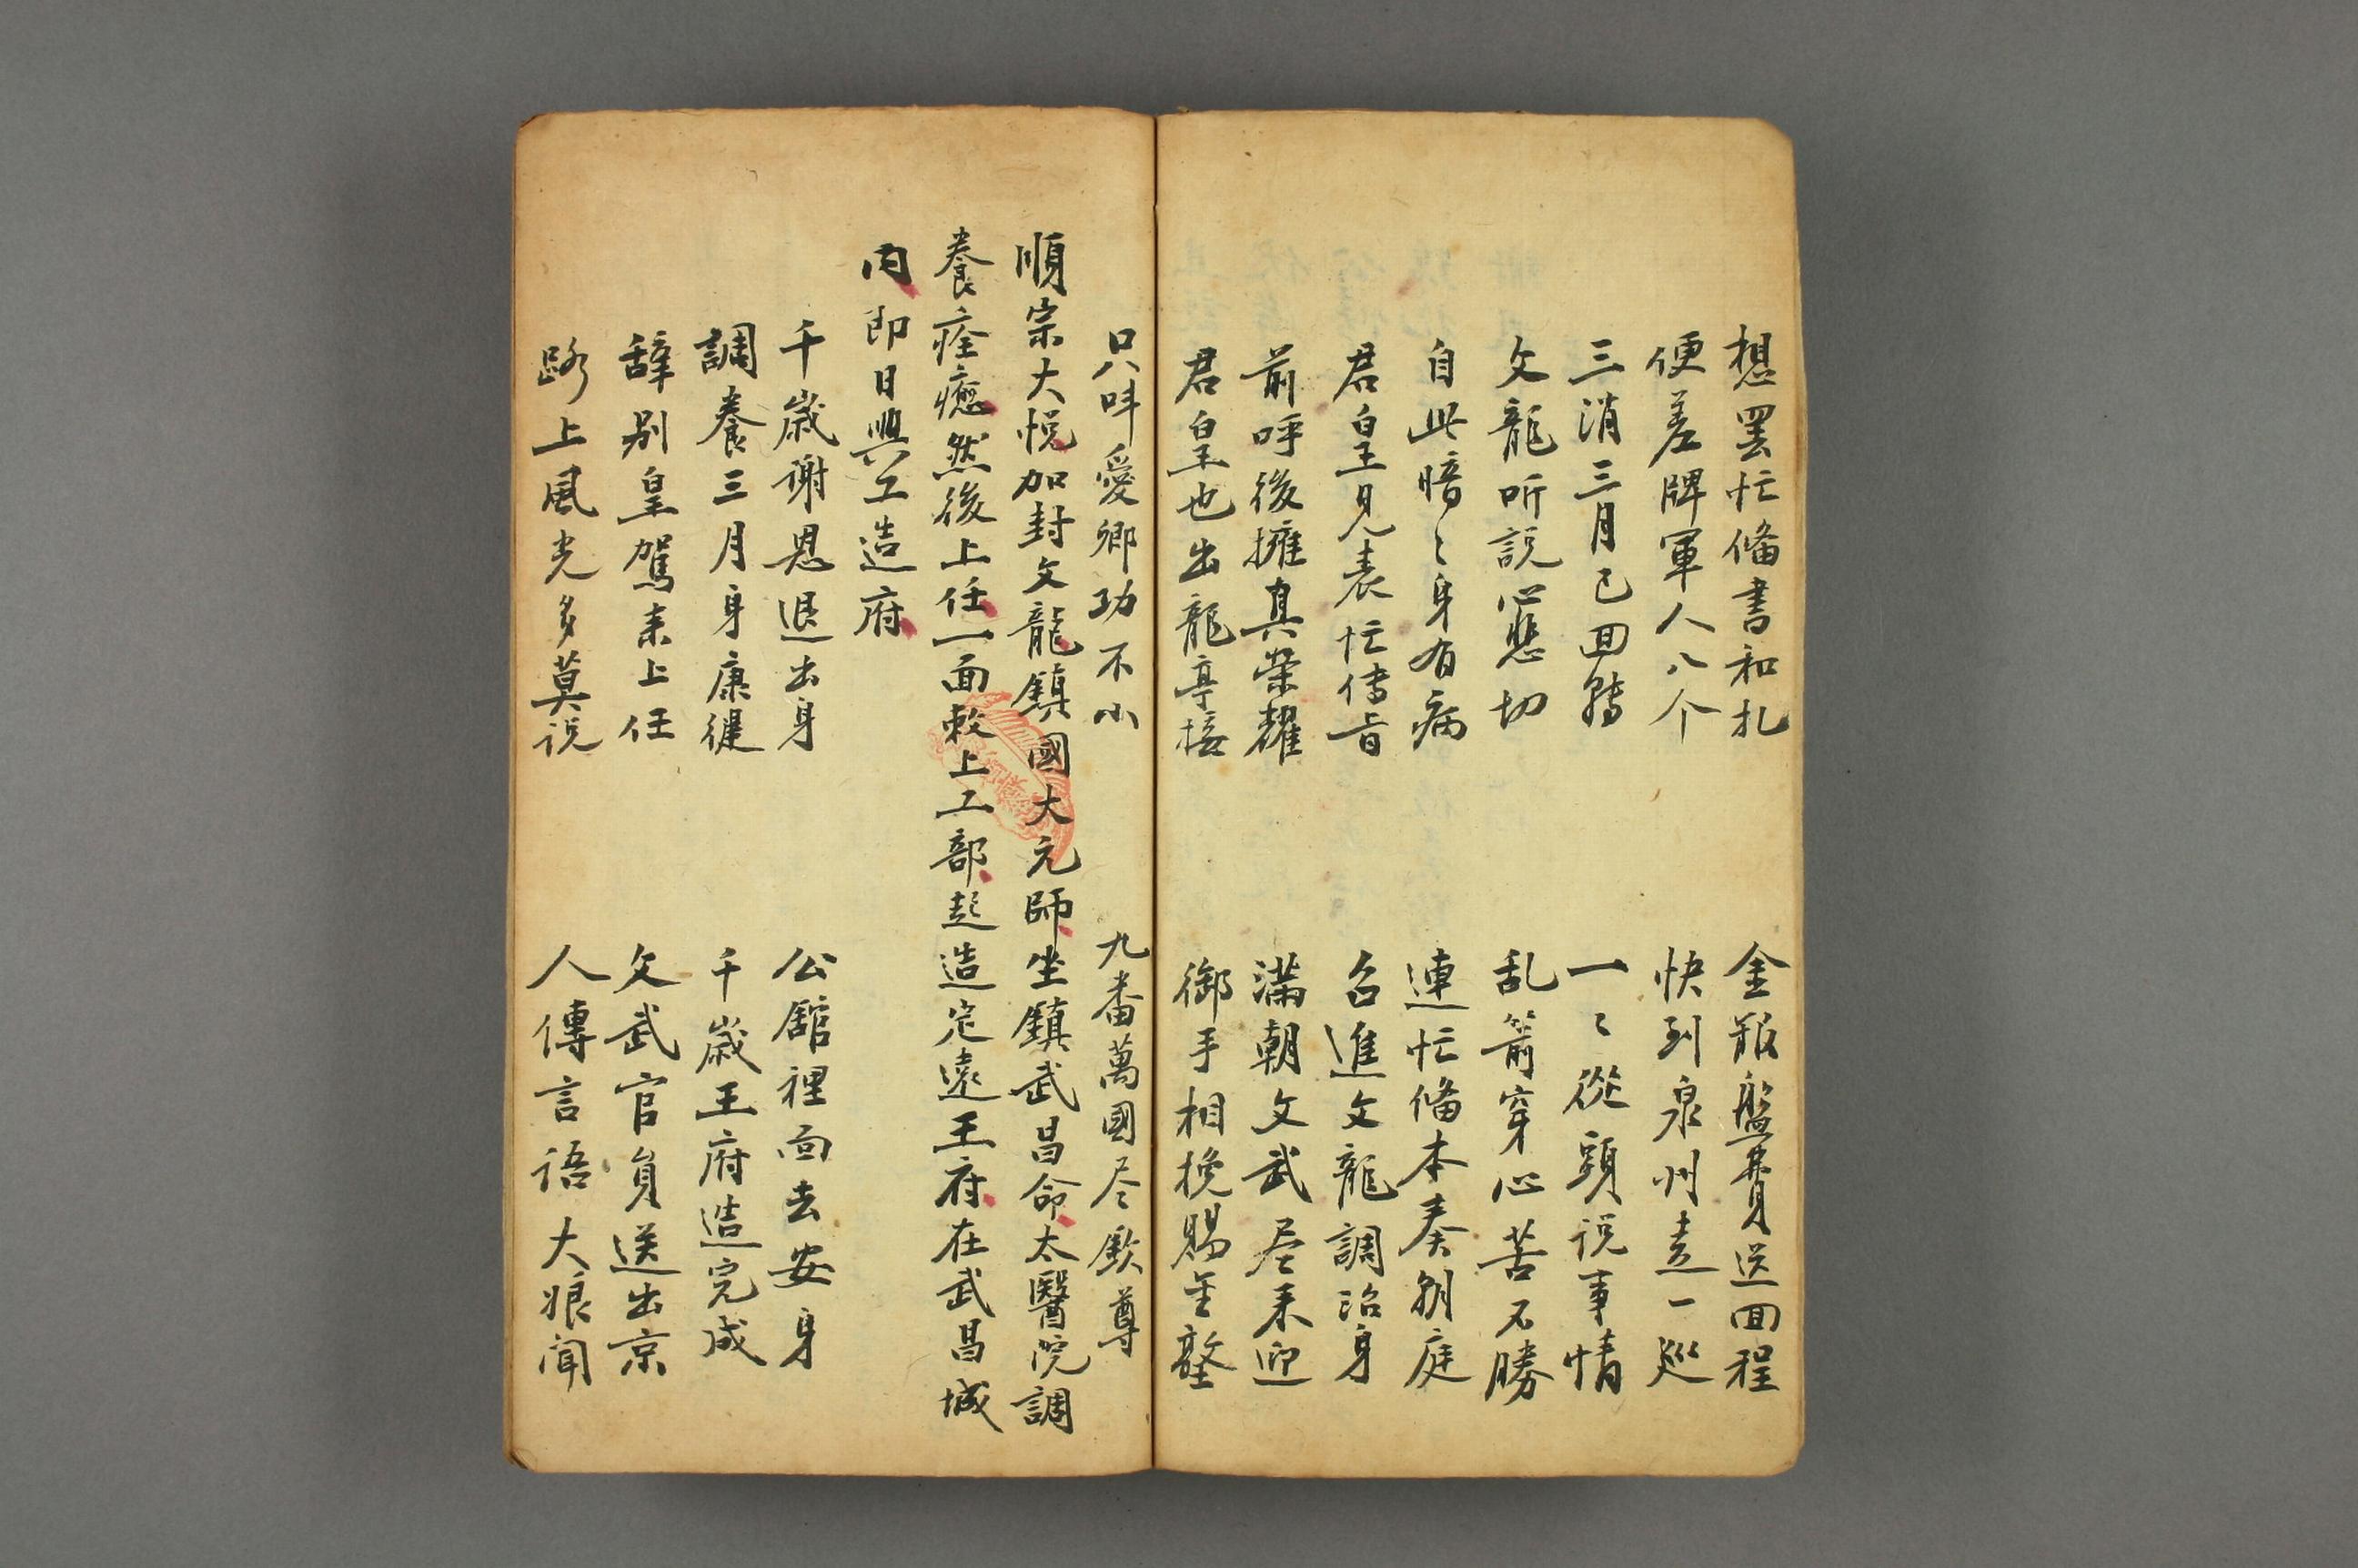 想罢忙偹書和扎 金銀盤費送回程
便差牌軍人八个 快到泉州走一巡
三消三月已回轉 一〻從頭说事情
文龍听説心悲切 乱箭穿心苦不勝
自此暗〻身有病 連忙偹本奏朝庭
君皇見表忙傳旨 召進文龍調治身
前呼後擁真荣耀 滿朝文武尽來迎
君皇也出龍亭接 御手相挽賜金墪
只呌愛卿功不小 九番萬國尽欽尊
順宗大悦加封文龍鎮國大元師坐鎮武昌命太醫院調
養痊癒然後上任一面敕上工部起造定遠王府在武昌城
内即日興工造府
千歲谢恩退出身 公舘裡面去安身
調養三月身康健 千歲王府造完成
辞别皇駕来上任 文武官員送出京
路上風光多莫说 人傳言语大娘闻